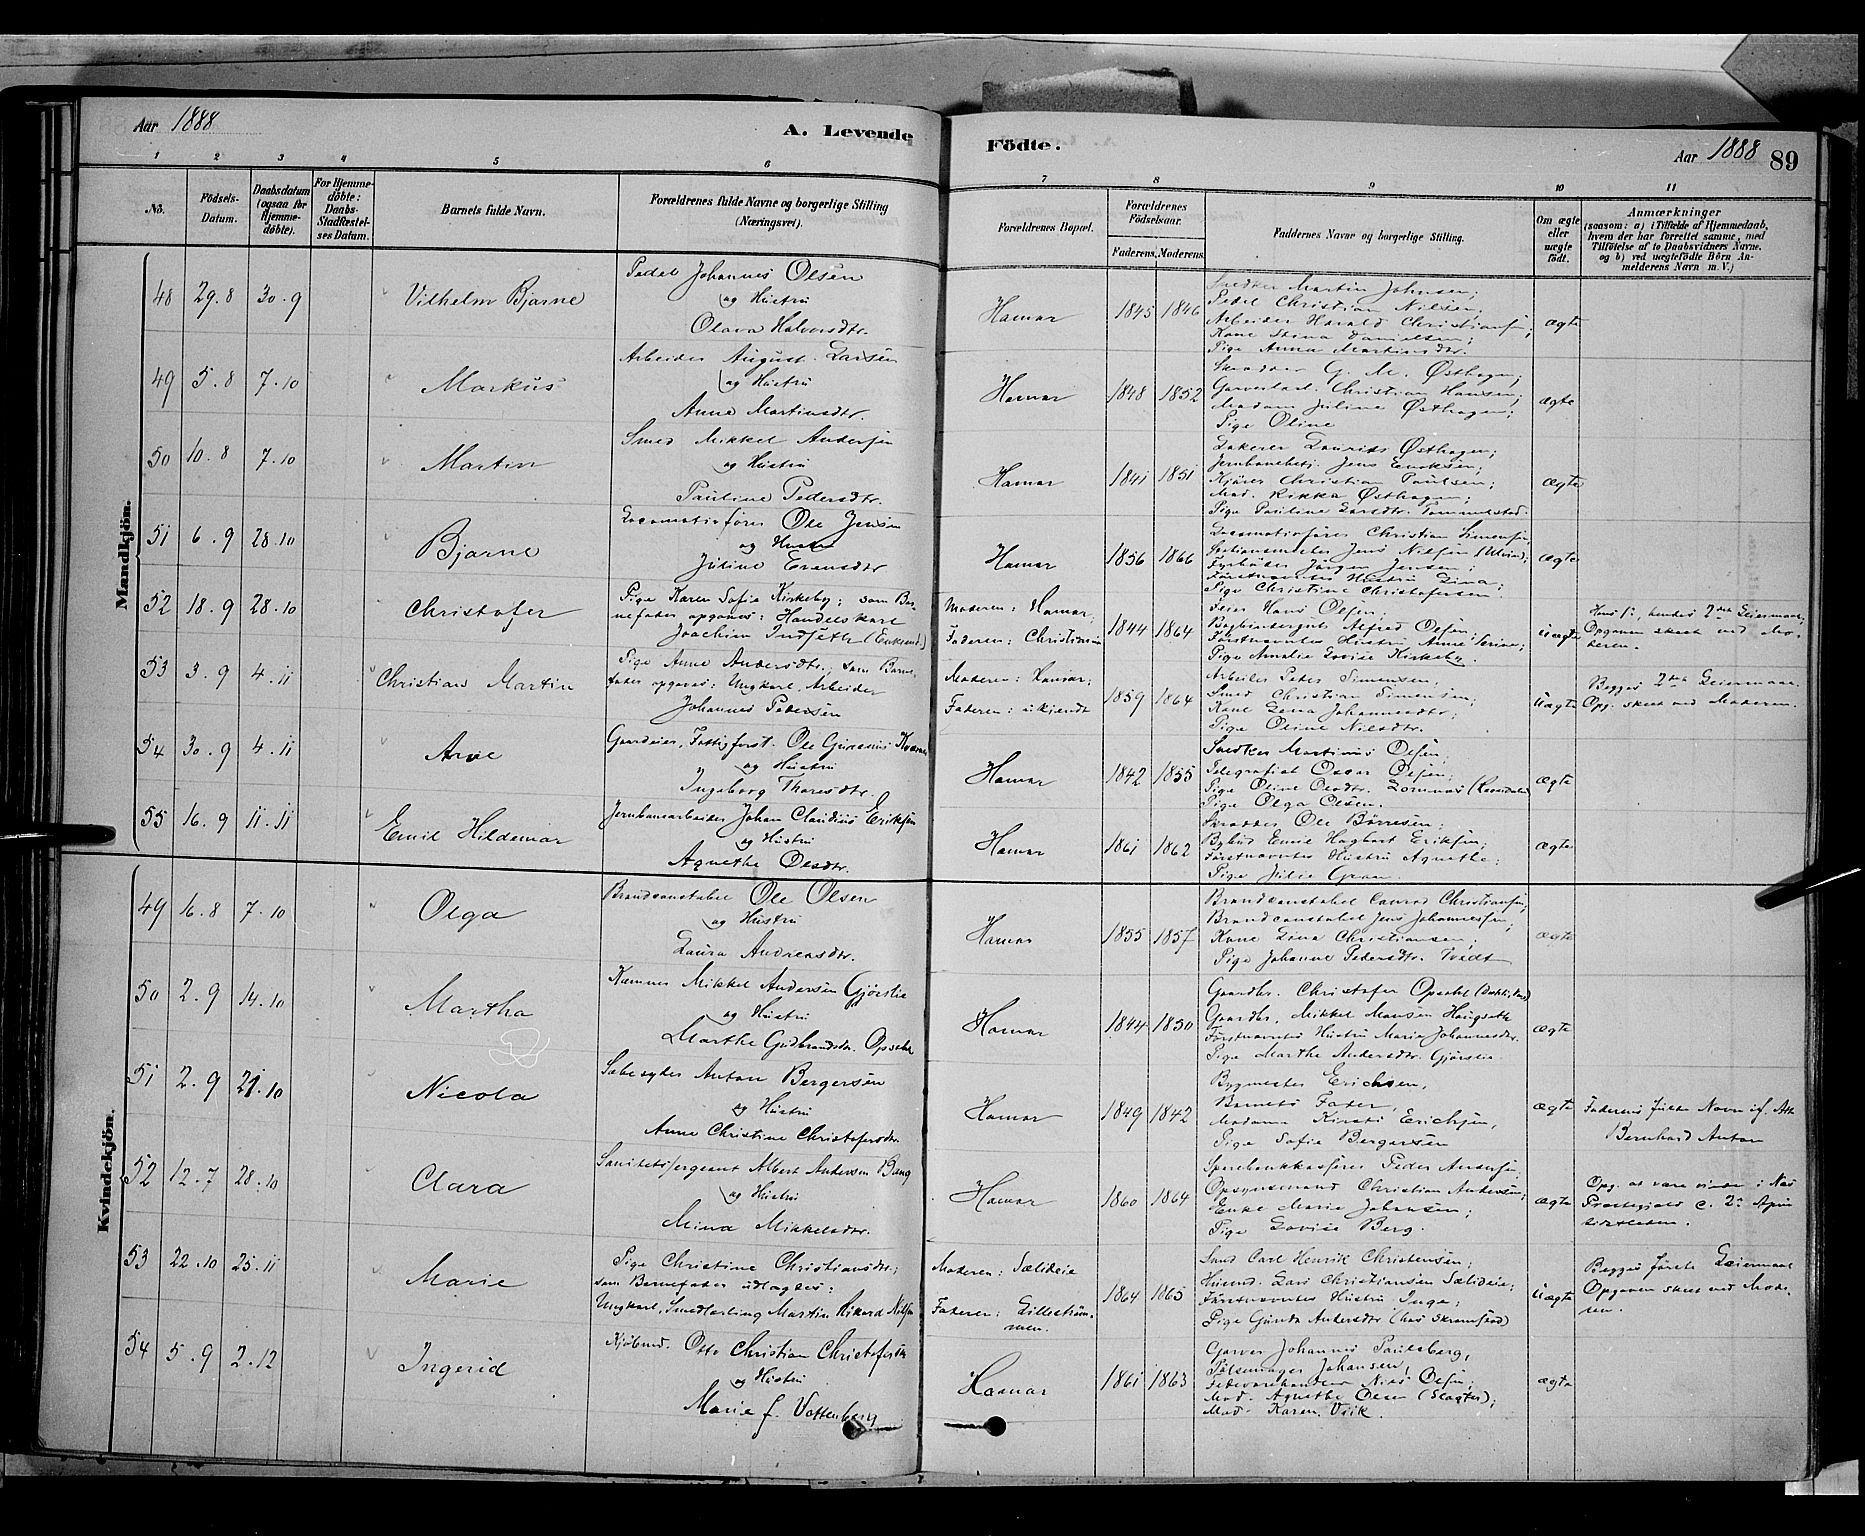 Aar 1888
A. Levende
Födte.
Aar 1888 89
1 2 3 4 5 6 7 8 9 10 11
No.
Födsels-
Datum.
Daabsdatum
(ogsaa for
Hjemme-
döbte).
For Hjemme-
döbte:
Daabs-
Stadfæstel-
ses Datum.
Barnets fulde Navn.
Forældrenes fulde Navne og borgerlige Stilling
(Næringsvei).
Forældrenes Bopæl.
Forældrenes
Födselsaar.
Faderens.
Moderens.
Faddernes Navne og borgerlige Stilling.
Om ægte
eller
uægte
födt.
Anmærkninger
(saasom: a) i Tilfælde af Hjemmedaab,
hvem der har forrettet samme, med
Tilföielse af to Daabsvidners Navne.
og b) ved uægtefödte Börn An-
melderens Navn m. V.)
Mandkjön.
48 29.8 30.9 Vilhelm Bjarne
Pedel Johannes Olsen
og Hustru
Olava Halvorsdtr.
Hamar 1845 1846
Snedker Martin Johnsen;
Pedel Christian Nilsen;
Arbeider Harald Christiansen;
Kone Stina Danielsen;
Pige Anna Martinsdtr.
ægte
49 5.8 7.10 Markus
Arbeider August Larsen
og Hustru
Anne Martinsdtr.
Hamar 1848 1852
G. M. Østhagen;
Christian Hansen;
Madam Juline Østhagen;
Pige Oline
ægte
50 10.8 7.10 Martin
Smed Mikkel Andersen
og Hustru
Pauline Pedersdtr.
Hamar 1841 1851
Laurids Østhagen;
Jernbanebetj. Jens Enoksen;
Kjører Christian Paulsen;
Mad. Rikka Østhagen;
Pige Pauline Larsdtr. Tommelstad.
ægte
51 6.9 28.10 Bjarne
Locomotivfører Ole Jensen
og Hustru
Juline Evensdtr
Hamar 1856 1866
Locomotivfører Christian Simensen;
Jens Nilsen
Fyrbøder Jørgen Jensen;
Førstnævntes Hustru Lina;
Pige Christine Christofersen.
ægte
52 18.9 28.10 Christofer
Pige Karen Sofie Kirkeby; som Bar-
nefader opgaves: Handelskarl
Joachim Indseth (Enkemd.)
Moderen: Hamar;
Faderen: Christiania
1844 1864
Feier Hans Olsen;
Bogbindergut Alfred Olsen;
Førstnævntes Hustru Anne
Pige Amalie Lovise Kirkeby.
Uægte
hendes 2det Leiermaal.
Opgaven skeet ved Mo-
deren.
53 3.9 4.11 Christian Martin
Pige Anne Andersdtr.; som Barne-
fader opgaves: Ungkarl, Arbeider
Johannes Pedersen
Moderen: Hamar;
Faderen: ukjendt
1859 1864
Arbeider Peder Simensen;
Smed Christian Simensen;
Kone Lena Johannesdtr;
Pige Oline Nilsdtr.
Uægte
Begges 2det Leiermaal.
Opg. skeet ved Moderen.
54 30.9 4.11 Arve
Gaardeier, Fattigforst. Ole Gunerius
og Hustru
Ingeborg Thoresdtr.
Hamar 1842 1855
Snedker Martinus Olsen;
Telegrafist Oscar Olsen;
Pige Oline Olsdtr.
Pige Olga Olsen.
ægte
55 16.9 11.11 Emil Hildemar
Jernbanearbeider Johan Claudius Eriksen
og Hustru
Agnethe Olsdtr.
Hamar 1861 1862
Skrædder Ole Børresen;
Bybud Emil Hagbart Eriksen;
Førstnævntes Hustru Agnethe;
Pige Julie
ægte
Kvindekjön.
49 16.8 7.10 Olga
Brandconstabel Ole Olsen
og Hustru
Laura Andreasdtr.
Hamar 1855 1857
Brandconstabel Conrad Christiansen;
Brandconstabel Jens Johannesen;
Kone Lina Christiansen;
Pige Johanne Pedersdtr. Tvedt
ægte
50 2.9 14.10 Martha
Mikkel Andersen Gjørslie
og Hustru
Marthe Gudbrandsdtr. Opsahl
Hamar 1844 1850
Gaardbr. Christofer Opsahl
Gaardbr. Mikkel Hansen Haugseth
Førstnævntes Hustru Marie Johannesdtr.
Pige Marthe Andersdtr. Gjørslie.
ægte
51 2.9 21.10 Nicola
Sæbesyder Anton Bergersen
og Hustru
Anne Christine Christofersdtr.
Hamar 1849 1842
Bygmester Erichsen,
Barnets Fader,
Madame Kirsti Erichsen,
Pige Sofie Bergersen
ægte
Faderens fulde Navn
Bernhard Anton
52 12.7 28.10 Clara
Sanitetssergeant Albert Andersen Bang
og Hustru
Mina Mikkelsdtr.
Hamar 1860 1864
Sparebankkasserer Peder Andersen,
Opsynsmand Christian Andersen;
Enke Marie Johansen;
Pige Lovise Berg.
ægte
Opg. at være viede i Næs
Præstegjeld
53 22.10 25.11 Marie
Pige Christine Christiansdtr;
som Barnefader udlagdes:
Ungkarl, Snedkerlærling Martin Rikard Nilsen
Moderen: Sælideie
Faderen: Lillestrøm-
men.
1864 1865
Smed Carl Henrik Christensen;
Husmd. Lars Christiansen Sælideie;
Førstnævntes Hustru Inga;
Pige Gunda Andersdtr (hos Skramstad)
Uægte
Begges første Leiermaal
Opgaven skeet ved Mode-
ren.
54 5.9 2.12 Ingerid
Kjøbmd. Otto Christian Christofersen
og Hustru
Marie f. Vottenberg
Hamar 1861 1863
Garver Johannes Paulsberg,
Pølsemager Johansen,
Fedevarehandler Olsen;
Mad. Agnethe Olsen (Slagter);
Mad. Karen Vik.
ægte